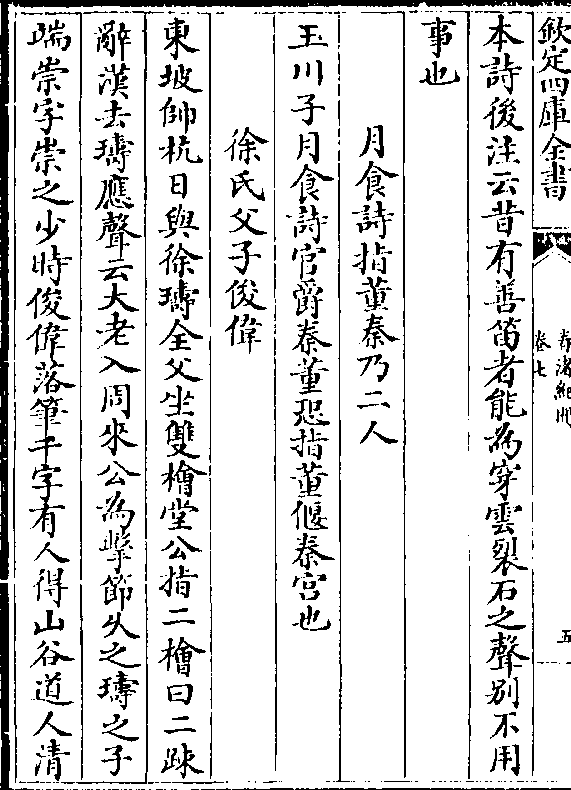 欽定四庫全書
春渚紀聞
卷七
五
本詩後注云昔有善笛者能為穿雲裂石之聲別不用
事也
月食詩指董秦乃二人
玉川子月食詩官爵奉董秦恐指董偃秦宮也
徐氏父子俊偉
東坡帥杭日與徐璹全父坐雙檜堂公指二檜曰二疎
辭漢去璹應聲云大老入周來公為擊節久之璹之子
端崇字崇之少時俊偉落筆千字有人得山谷道人清